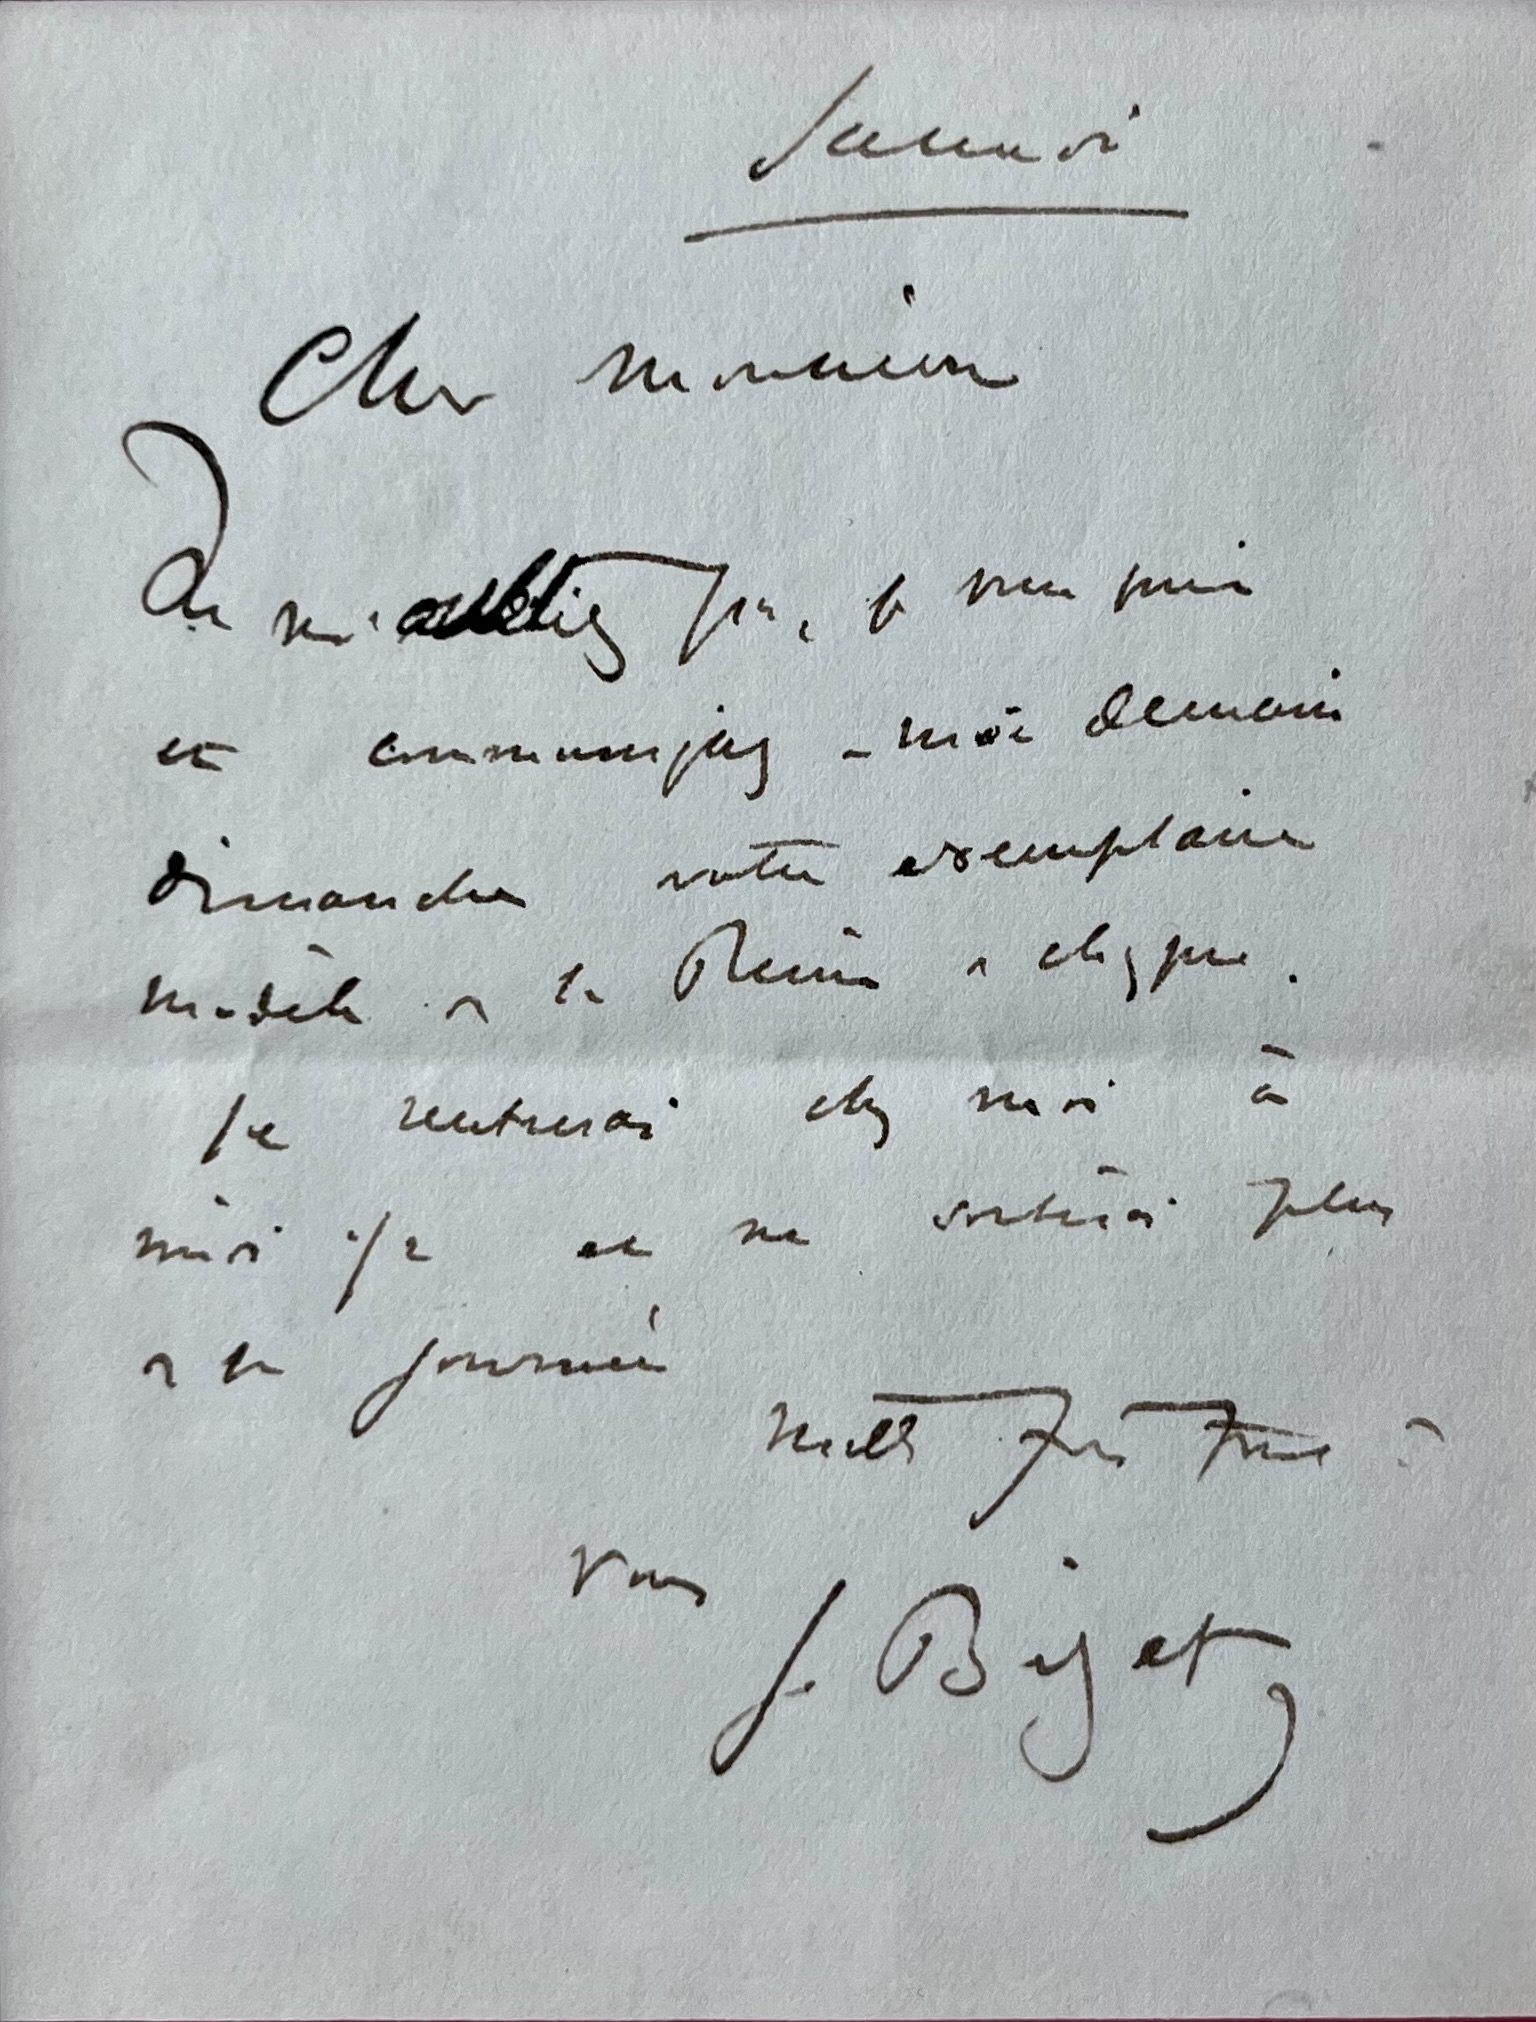 Samedi
Cher monsieur
Ne m'oubliez pas, je vous prie
et communiquez-moi demain
dimanche votre exemplaire
modèle de la Reine de Chypre.
Je rentrerai chez moi à
midi 1/2 et ne sortirai plus
de la journée
mille fois à
vous
G. Bizet